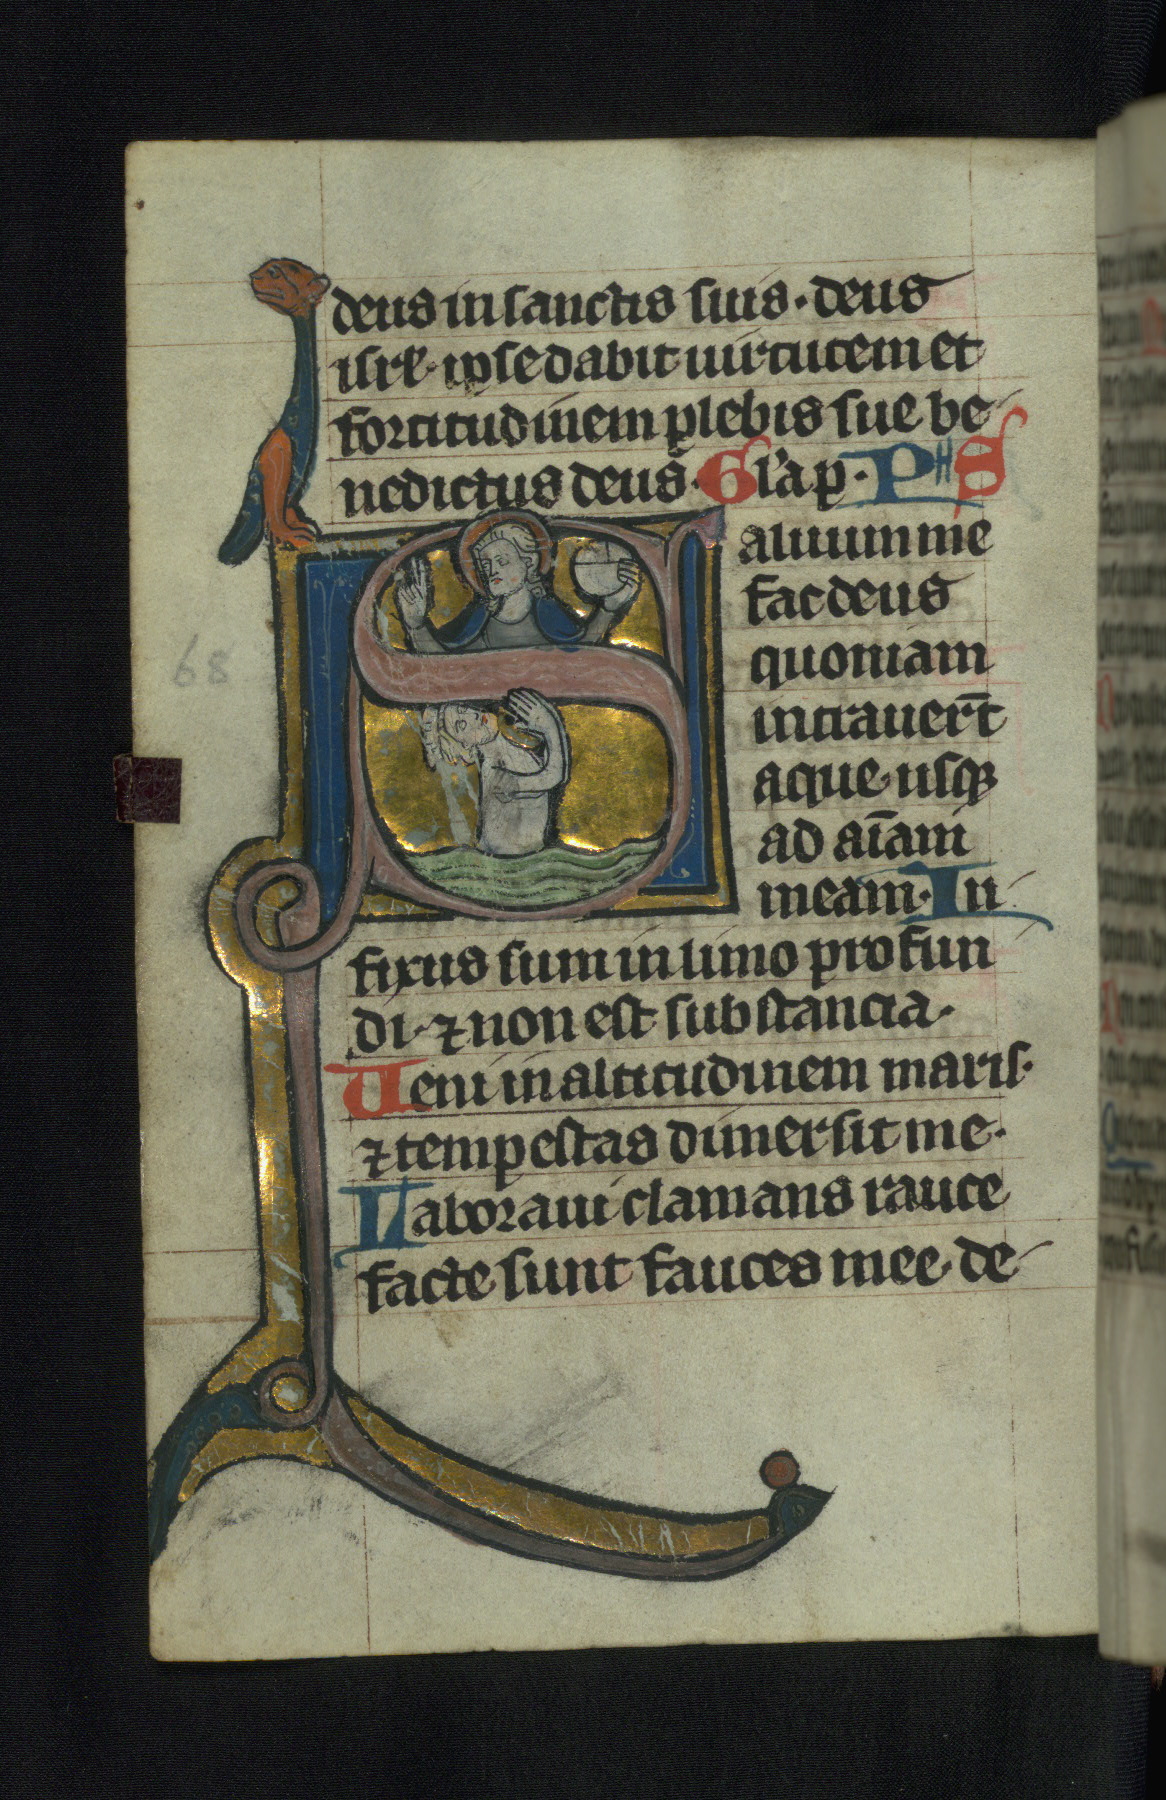 deus in sanctis suis. deus
isrl'. ipse dabit uirtutem et
fortitudinem plebis sue be-
nedictus deus. Gl'a p. PHS
S
aluum me
fac deus
quoniam
intrauer̄t
aque usqꝫ
ad aīam
meam. In
fixus sum in limo profun
di. ⁊ non est substancia.
Ueni in altitudinem maris.
⁊ tempestas dimersit me.
Laboraui clamans rauce
facte sunt fauces mee. de-
68